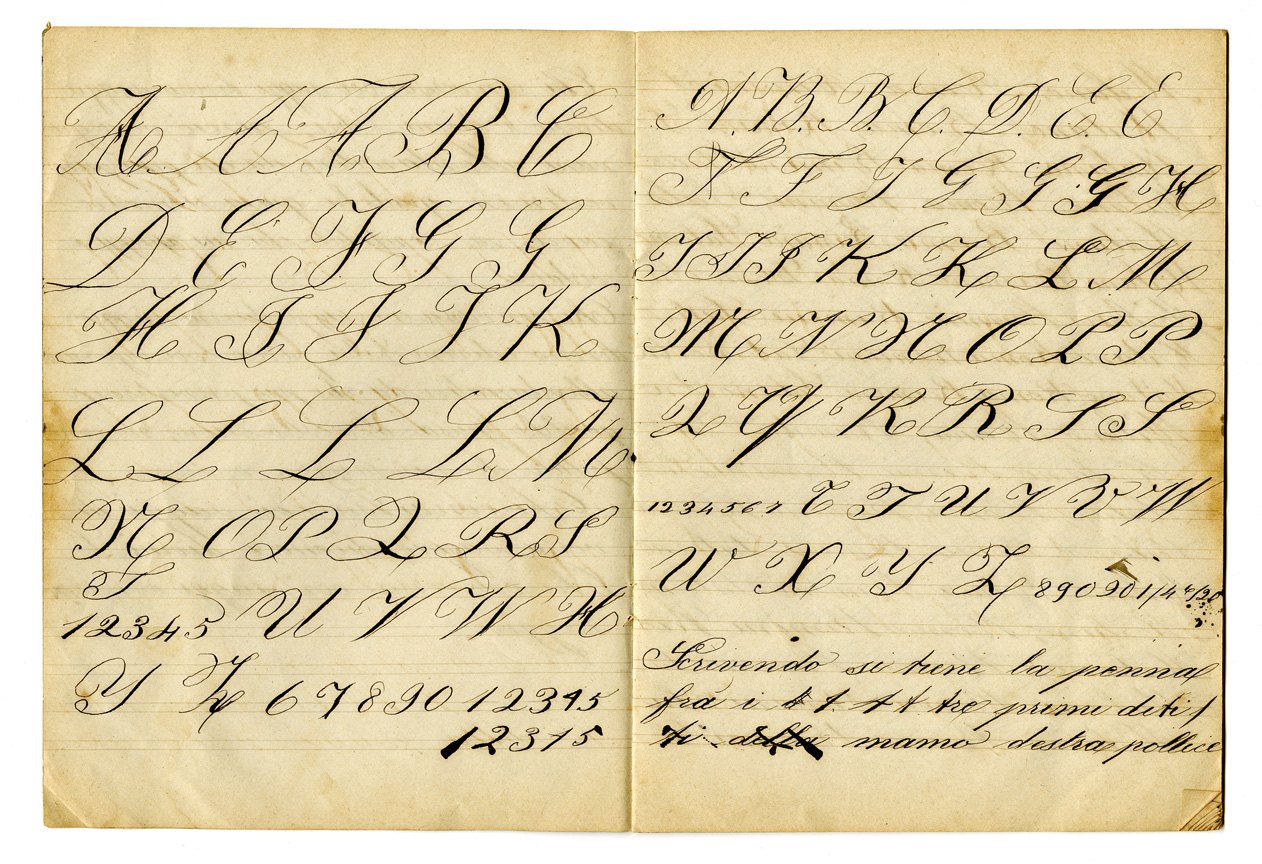 A A A B C
D E F G G
H I I I K
L L L L M
N O P Q R S
T
1 2 3 4 5 U V W X
Y Z 6 7 8 9 0 1 2 3 4 5
1 2 3 4 5
A. B. B. C. D. E. E
F F I G G G H
I I I K K L M
M N N O P P
Q Q K R S S
1 2 3 4 5 6 7 T T U V V W
W X Y Z 8 9 0 9 0 1/4
Scrivendo si tiene la penna
fra i t t t t tre primi diti
ti della mamo destra pollice